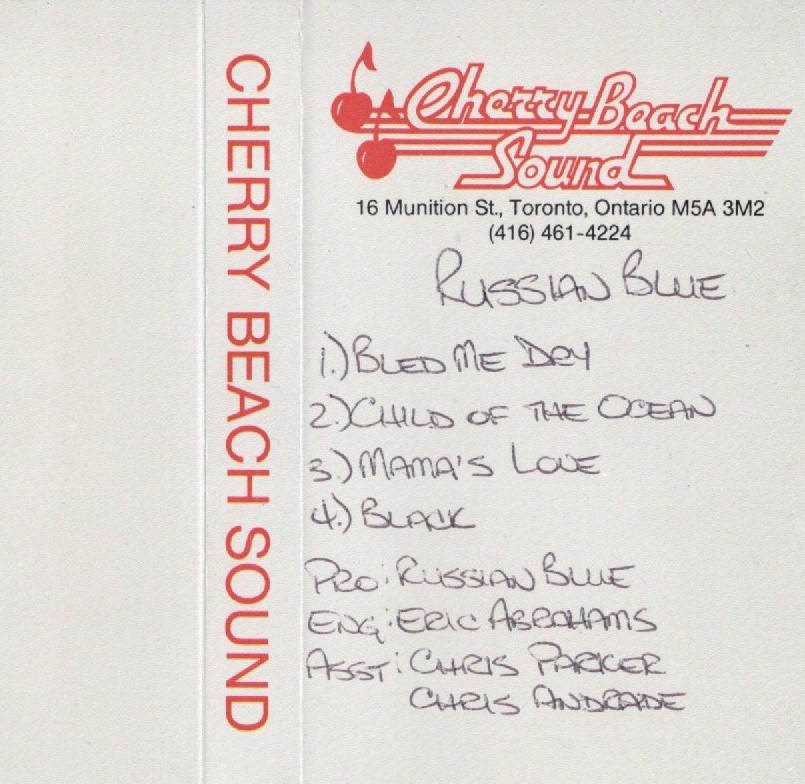 CHERRY BEACH SOUND
Cherry Beach
Sound
16 Munition St., Toronto, Ontario M5A 3M2
(416) 461-4224
RUSSIAN BLUE
1.) BLED ME DRY
2.) CHILD OF THE OCEAN
3.) MAMA'S LOVE
4.) BLACK
PRO: RUSSIAN BLUE
ENG: ERIC ABRAHAMS
ASST: CHRIS PARKER
CHRIS ANDRADE